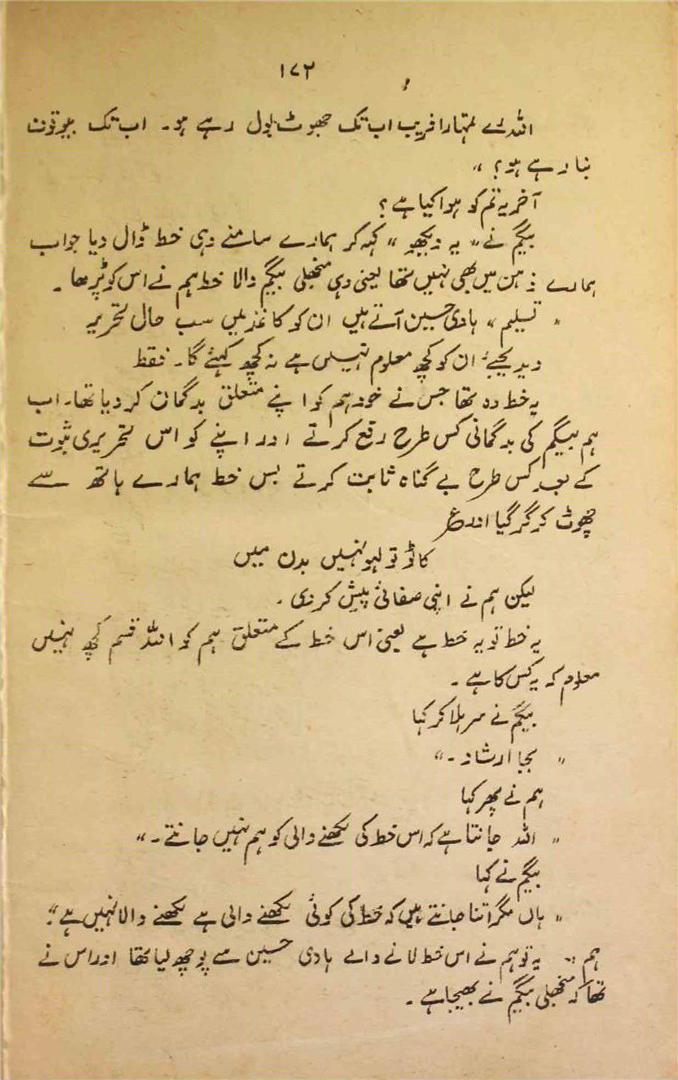 ۱۷۲
اللہ رے تمہارا فریب اب تک جھوٹ بول رہے ہو۔ اب تک بیوقوف
بنا رہے ہو؟ "
آخر یہ تم کو ہوا کیا ہے؟
بیگم نے " یہ دیکھو " کہہ کر ہمارے سامنے وہی خط ڈال دیا جو اب
ہمارے ذہن میں بھی نہیں تھا یعنی وہی منجھلی بیگم والا خط ہم نے اس کو پڑھا۔
" تسلیم " ہادی حسین آتے ہیں ان کو کاغذ میں سب حال تحریر
دیدیجیے ان کو کچھ معلوم نہیں ہے نہ کچھ کہئے گا۔ فقط
یہ خط وہ تھا جس نے خود ہم کو اپنے متعلق بدگمان کر دیا تھا۔ اب
ہم بیگم کی بدگمانی کس طرح رفع کرتے اور اپنے کو اس تحریری ثبوت
کے بعد کس طرح بے گناہ ثابت کرتے بس خط ہمارے ہاتھ سے
چھوٹ کر گر گیا اور ع
کاٹو تو لہو نہیں بدن میں
لیکن ہم نے اپنی صفائی پیش کر دی۔
یہ خط تو یہ خط ہے یعنی اس خط کے متعلق ہم کو اللہ قسم کچھ نہیں
معلوم کہ یہ کس کا ہے۔
بیگم نے سر ہلا کر کہا
" بجا ارشاد۔"
ہم نے پھر کہا
" اللہ جانتا ہے کہ اس خط کی لکھنے والی کو ہم نہیں جانتے۔"
بیگم نے کہا
" ہاں مگر اتنا جانتے ہیں کہ خط کی کوئی لکھنے والی ہے لکھنے والا نہیں ہے"۔
ہم :۔ یہ تو ہم نے اس خط لانے والے ہادی حسین سے پوچھ لیا تھا اور اس نے
تھا کہ منجھلی بیگم نے بھیجا ہے۔